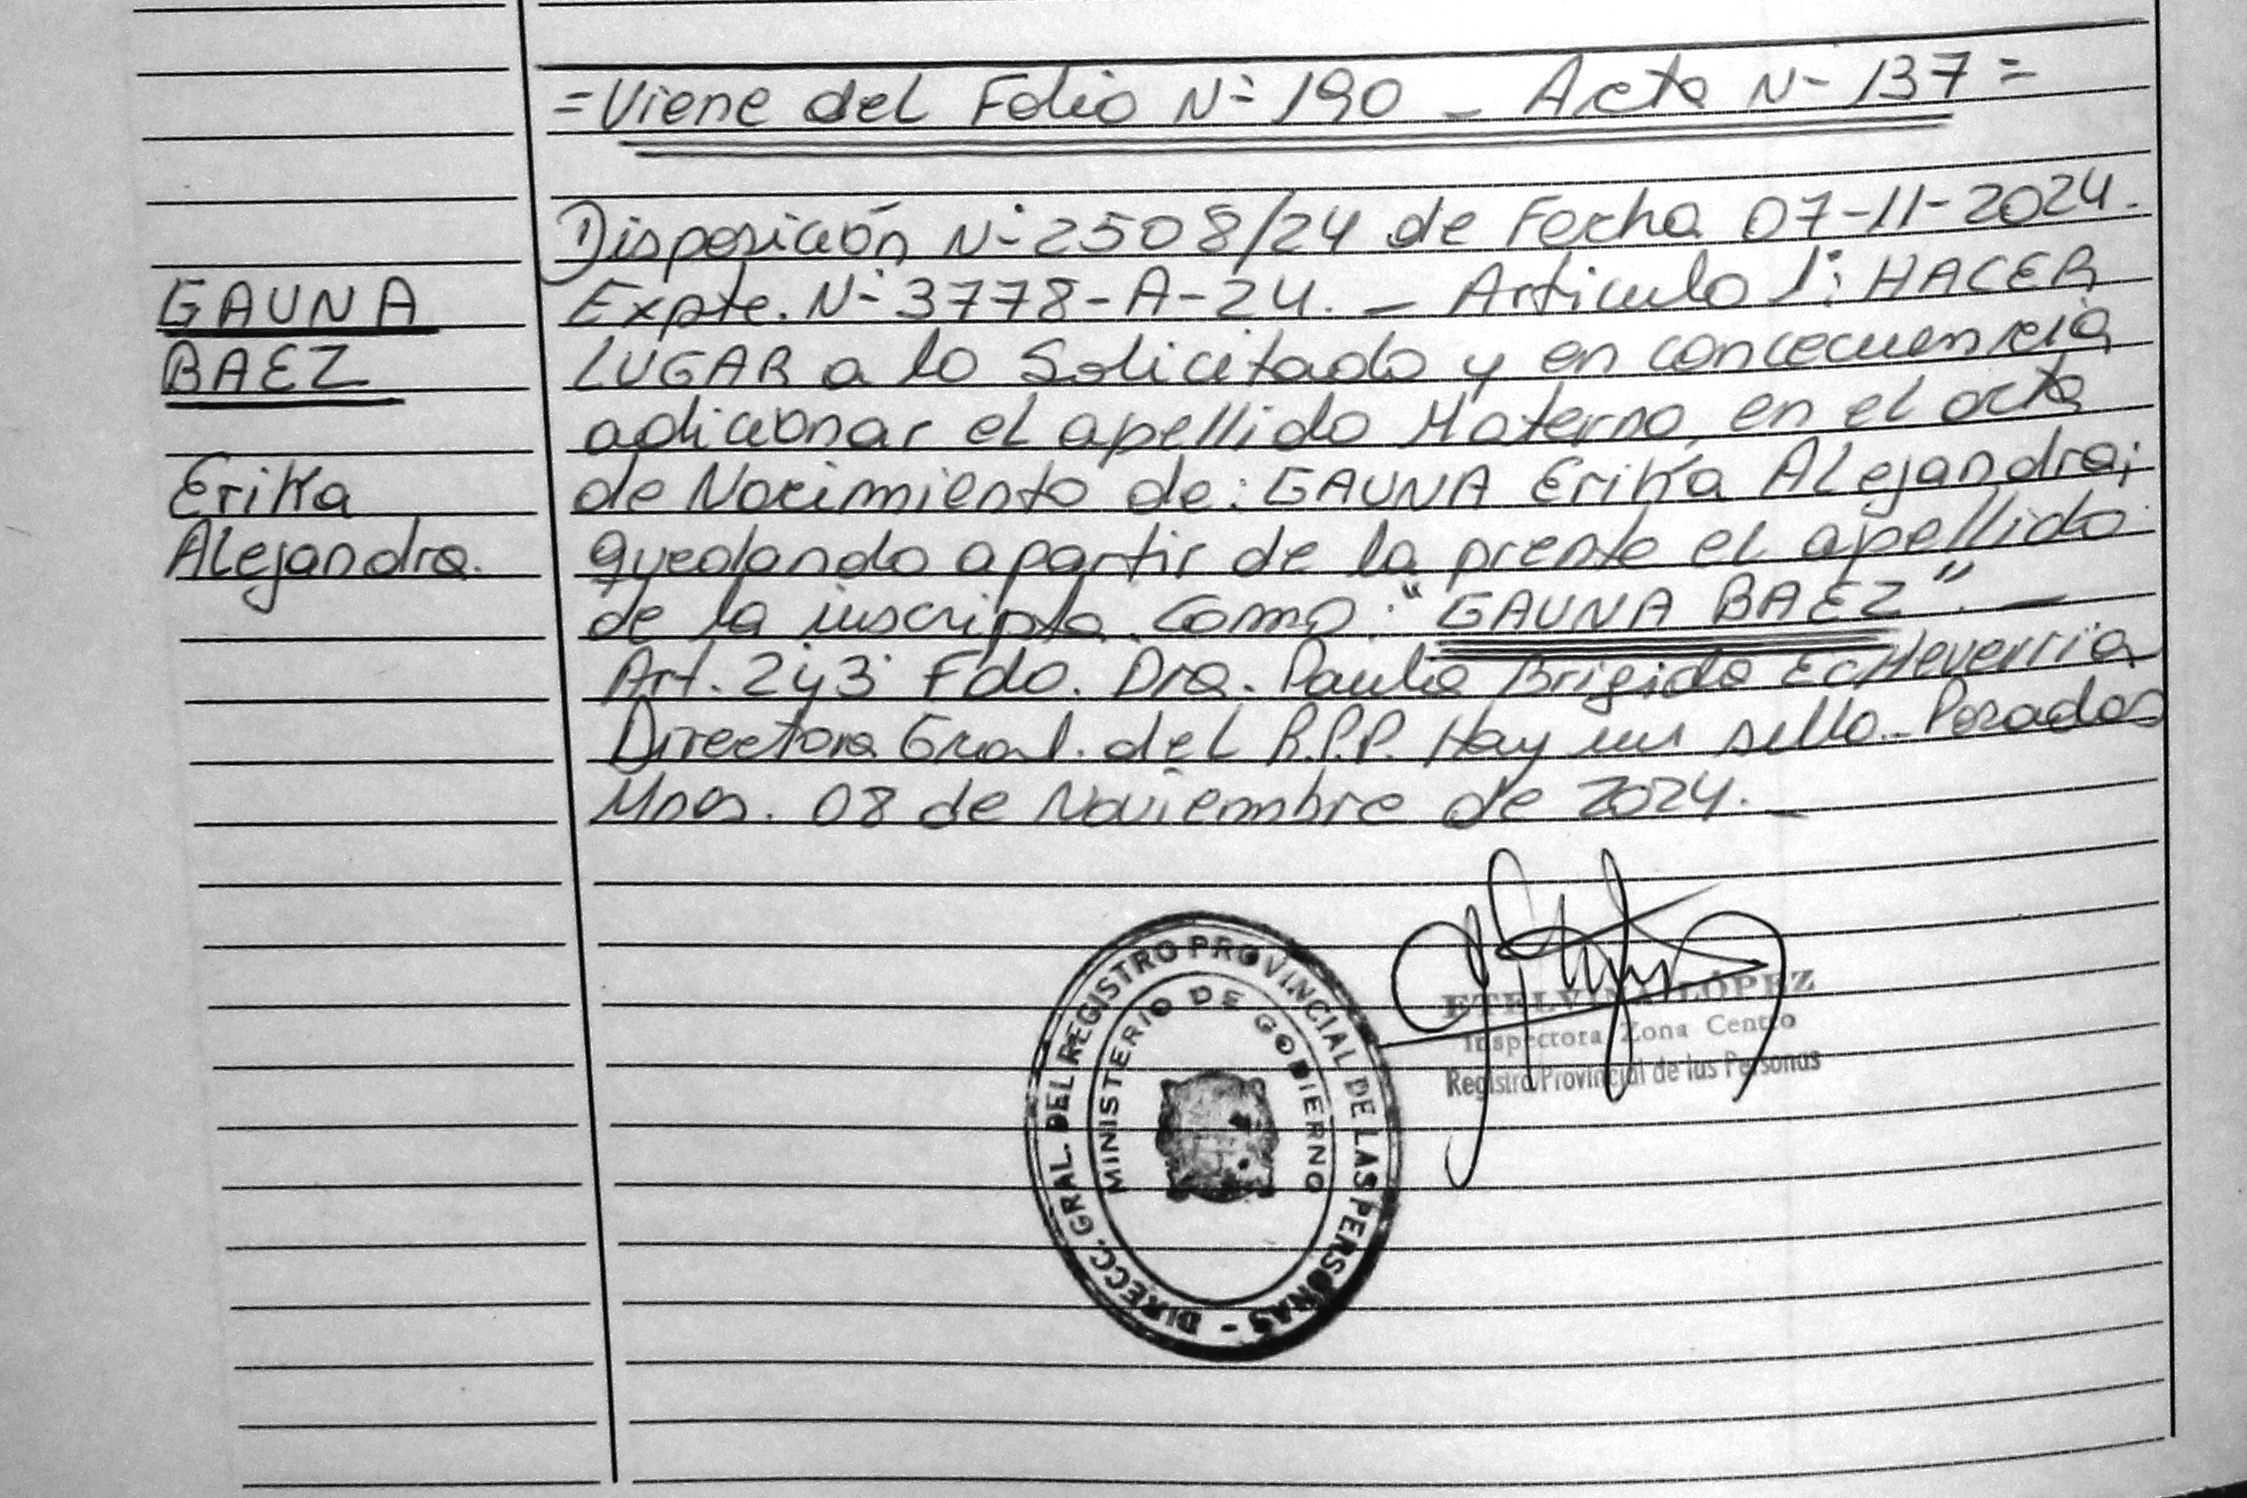 =Viene del Folio Nº 190 - Acta Nº 137=
Disposición Nº 2508/24 de Fecha 07-11-2024.
Expte. Nº 3778-A-24. - Articulo 1º: HACER
LUGAR a lo Solicitado y en concecuencia
adicionar el apellido Materno, en el acta
de Nacimiento de: GAUNA Erika Alejandra;
quedando a partir de la prente el apellido
de la inscripta como: "GAUNA BAEZ". -
Art. 2º y 3º Fdo. Dra. Paula Brigida EcHeverria
Directora Gral. del R.P.P. Hay un sello - Posadas
Mnes. 08 de Noviembre de 2024. -
GAUNA
BAEZ
Erika
Alejandra.
DIRECC. GRAL. DEL REGISTRO PROVINCIAL DE LAS PERSONAS -
MINISTERIO DE GOBIERNO
ETELVINA LÓPEZ
Inspectora Zona Centro
Registro Provincial de las Personas